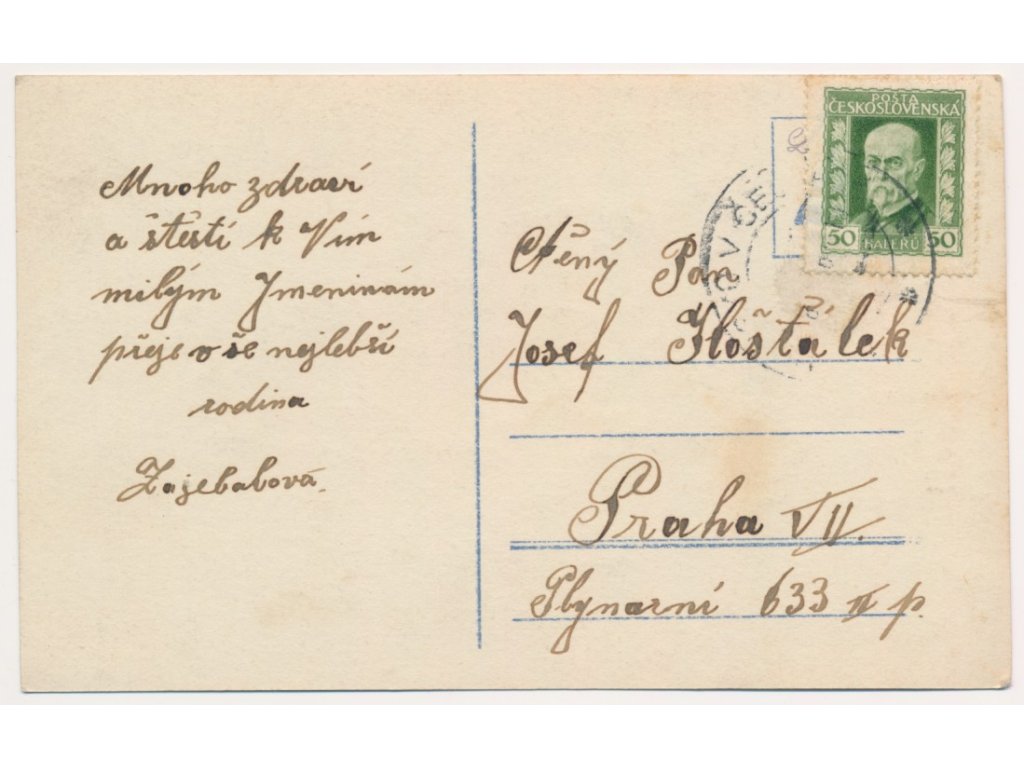 Mnoho zdraví
a štestí k Vím
milým Jmeninám
přeje vše nejlebší
rodina
Zajebabová.
POŠTA
ČESKOSLOVENSKÁ
50 HALÉŘŮ 50
Ctěný Pan
Josef Hošťálek
Praha VII.
Plynarní 633 II p.